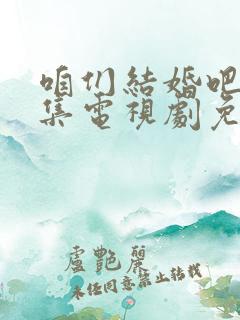 咱们結婚吧
集電視劇免
盧艷麗
未经同意禁止转载